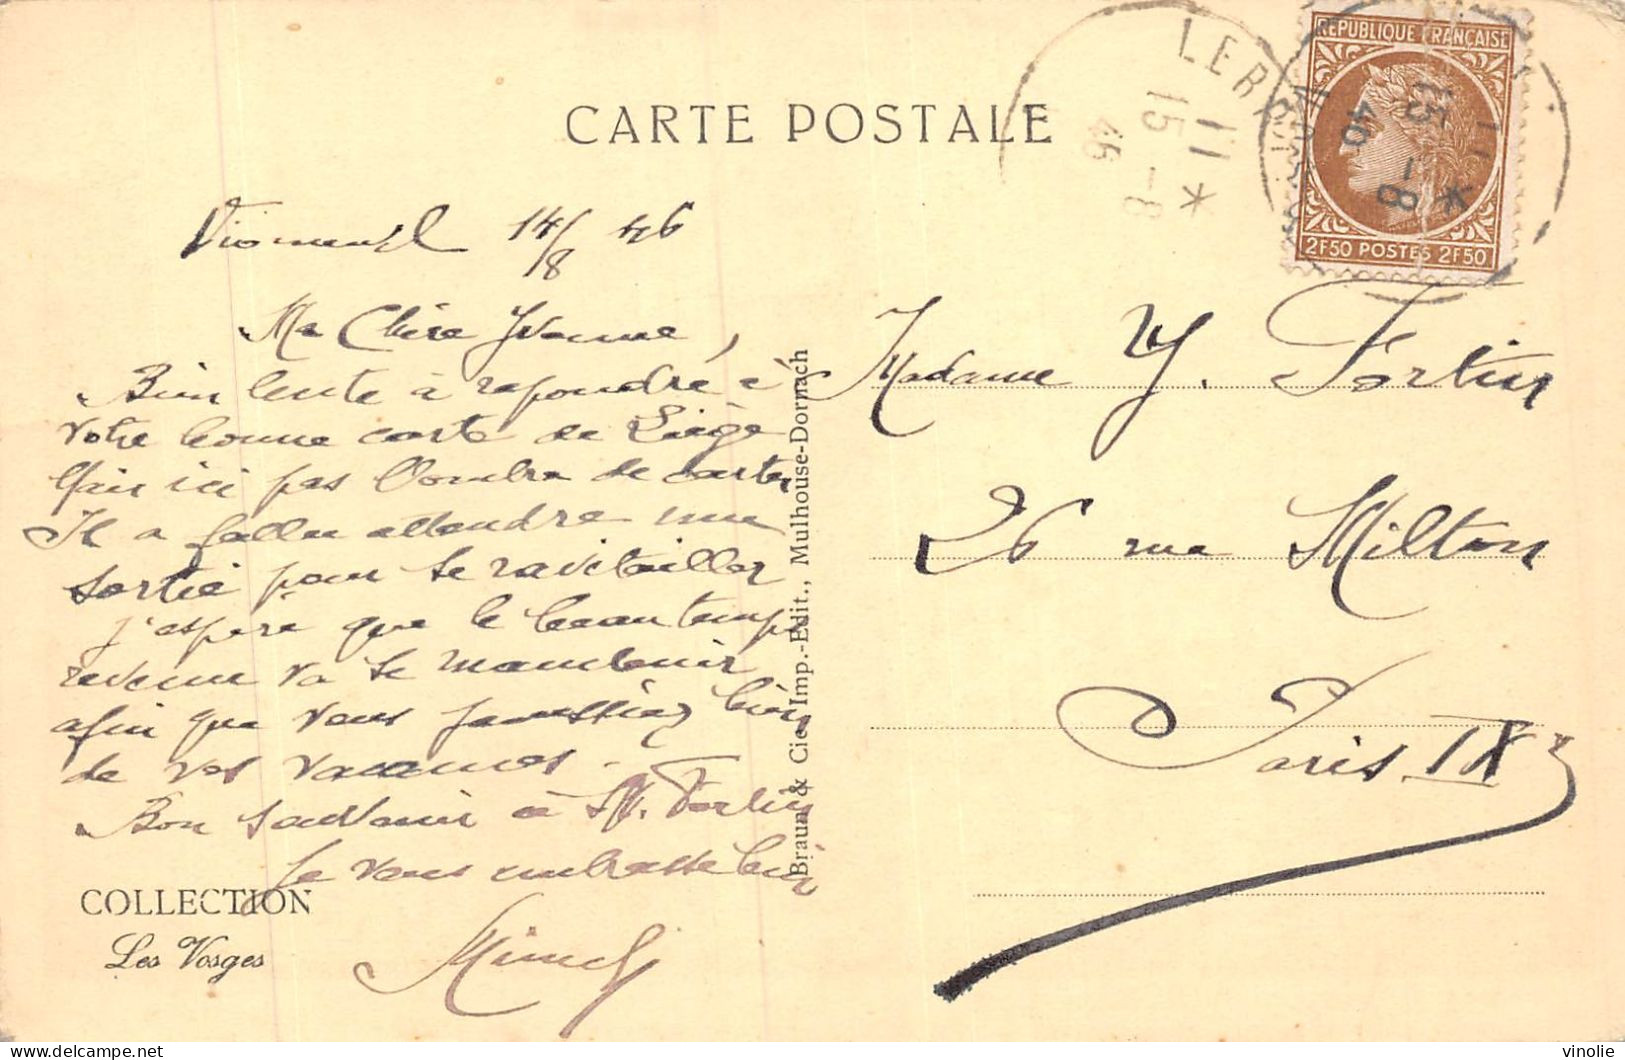 CARTE POSTALE
LE
11 *
15 - 8
46
11 *
15 - 8
46
REPUBLIQUE FRANÇAISE
2F50 POSTES 2F50
14/8 46
Ma Chère Yvonne,
Bien lente à repondre à
votre bonne carte de Liège
Mais ici pas l'ombre de cartes
Il a fallu attendre une
sortie pour se ravitailler
j'espère que le beau temps
revenu va se maintenir
afin que vous jouissiez bien
de vos vacances.
Bon souvenir à M. Fortin
Je vous embrasse bien
Madame Y. Fortin
26 rue Milton
Paris IXe
Braun & Cie, Imp.-Edit., Mulhouse-Dornach
COLLECTION
Les Vosges
delcampe.net
vinolie